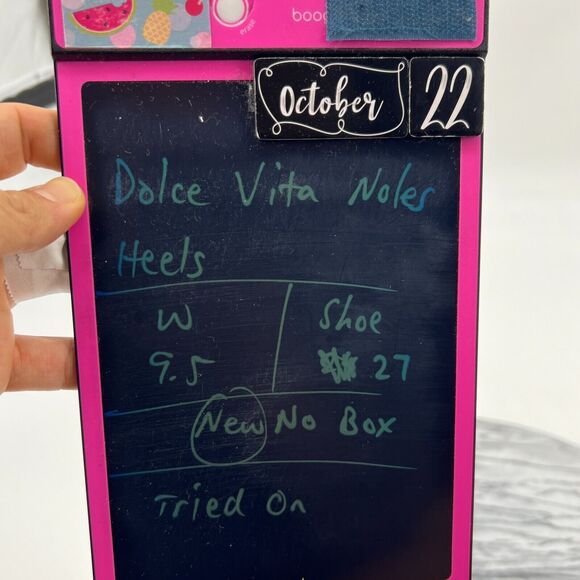 erase
boog
October 22
Dolce Vita Noles
Heels
W Shoe
9.5 27
New No Box
Tried On